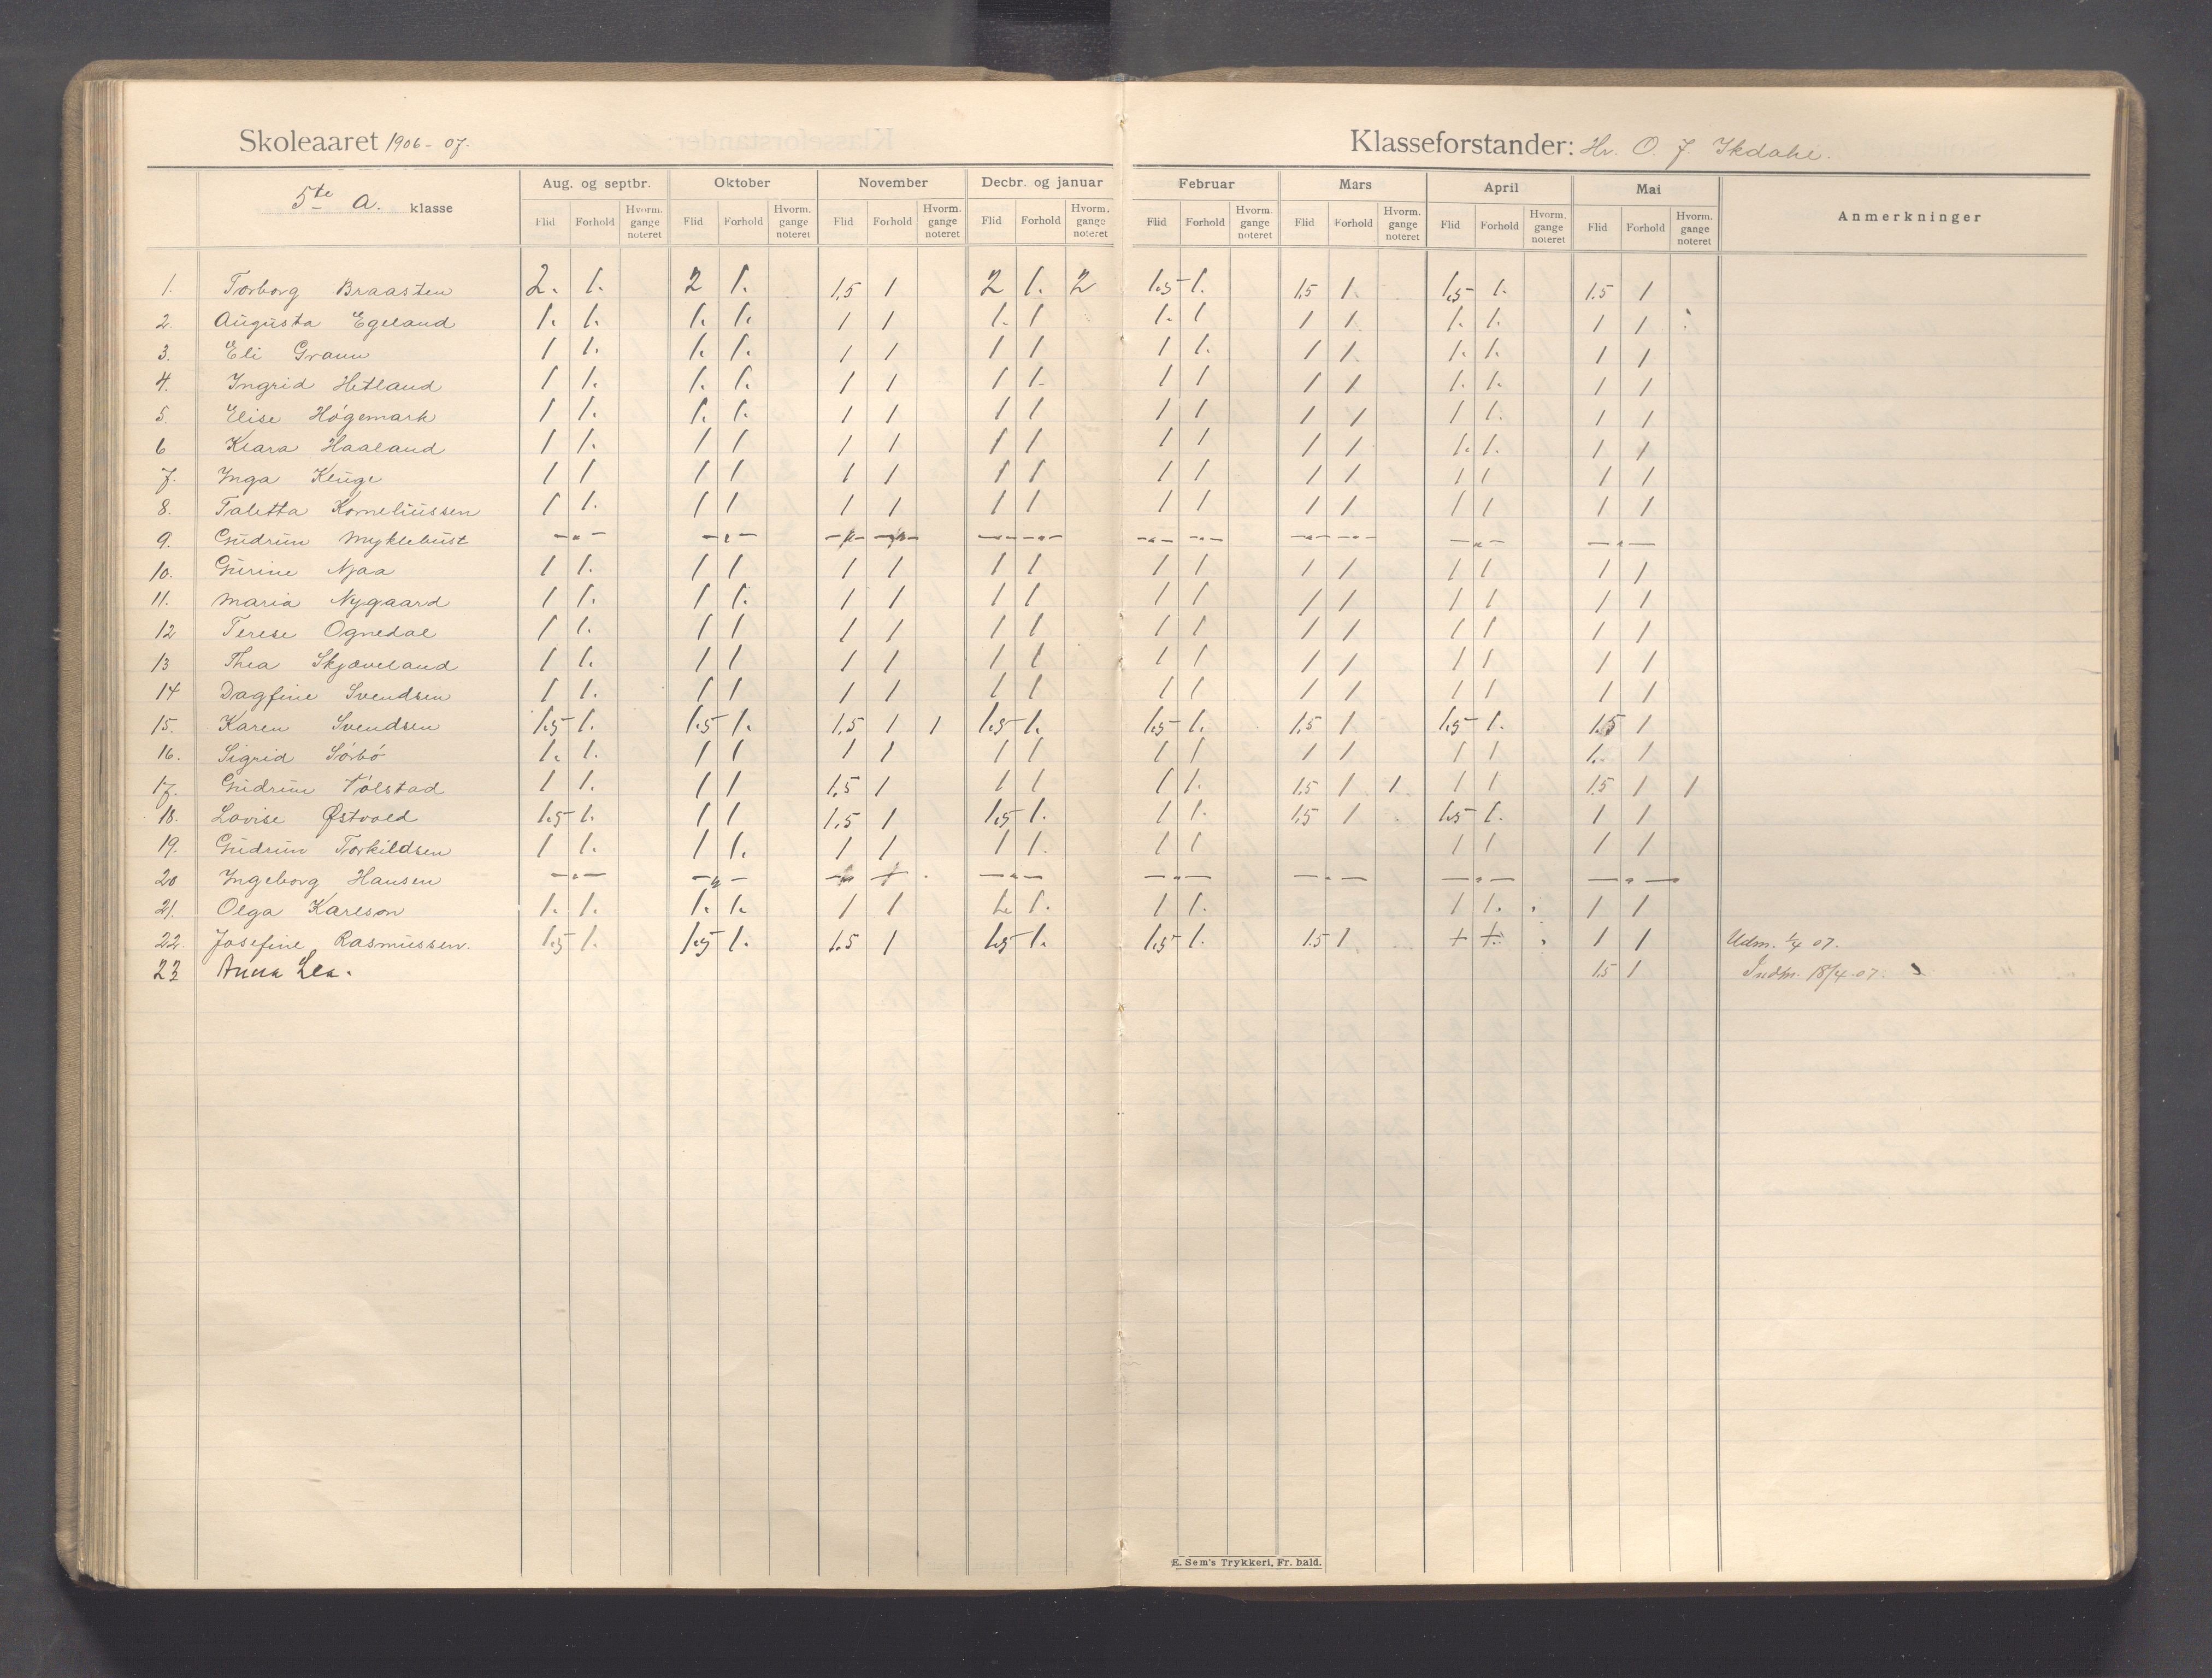 Skoleaaret 1906-07.
Klasseforstander: Hr. O. J.
5te a. klasse
Aug. og septbr. Oktober November Decbr. og januar Februar Mars April Mai Anmerkninger
Flid Forhold Hvorm. gange noteret Flid Forhold Hvorm. gange noteret Flid Forhold Hvorm. gange noteret Flid Forhold Hvorm. gange noteret Flid Forhold Hvorm. gange noteret Flid Forhold Hvorm. gange noteret Flid Forhold Hvorm. gange noteret Flid Forhold Hvorm. gange noteret
1. Torborg Braasten 2. 1. 2 1. 1,5 1 2 1. 2 1.5 1. 1,5 1. 1.5 1. 1.5 1
2. Augusta Egeland 1. 1. 1. 1. 1 1 1. 1 1. 1 1 1. 1. 1. 1 1
3. Eli Grann 1 1. 1. 1. 1 1 1 1 1 1. 1 1. 1. 1. 1 1
4. Ingrid Hetland 1 1. 1. 1. 1 1 1 1. 1 1 1 1 1. 1. 1 1
5. Elise Högemark 1 1. 1. 1. 1 1 1 1 1 1 1 1 1 1. 1 1
6 Klara Haaland 1 1. 1 1 1 1 1 1 1 1 1 1 1. 1. 1 1
7. Inga Kluge 1 1 1 1 1 1 1 1 1 1 1 1 1 1 1 1
8. Taletta Korneliussen 1 1. 1 1 1 1 1 1 1 1 1 1 1 1 1 1
9. Gudrun Myklebust — " — — " — — " — — " — — " — — " — — " — — " —
10. Gurine Njaa 1 1. 1 1 1 1 1 1 1 1 1 1 1 1 1 1
11. Maria Nygaard 1 1. 1 1. 1 1 1 1 1 1 1 1 1 1 1 1
12 Terese Ognedal 1 1. 1 1 1 1 1 1 1 1 1 1 1 1 1 1
13 Thea Skjæveland 1 1. 1 1 1 1 1 1 1 1 1 1 1 1 1 1
14 Dagfine Svendsen 1 1. 1 1 1 1 1 1 1 1 1 1 1 1 1 1
15. Karen Svendsen 1.5 1. 1.5 1. 1,5 1 1 1.5 1. 1.5 1. 1,5 1 1.5 1. 1.5 1
16. Sigrid Sörbö 1. 1. 1 1 1 1 1 1 1 1 1 1 1 1 1. 1
17. Gudrun Tölstad 1 1. 1 1 1,5 1 1 1 1 1. 1,5 1 1 1 1 1.5 1 1
18. Lovise Østvold 1.5 1. 1 1 1,5 1 1.5 1. 1 1. 1,5 1 1.5 1. 1 1
19. Gudrun Torkildsen 1 1. 1 1. 1 1 1 1. 1 1 1 1 1 1
20 Ingeborg Hansen — " — — " — — " — — " — — " — — " — — " — — " —
21. Olga Karlson 1. 1. 1. 1. 1 1 1. 1. 1 1. 1 1. 1 1
22. Josefine Rasmussen. 1.5 1. 1.5 1. 1.5 1 1.5 1. 1.5 1. 1.5 1 + +. 1 1 Udm. 1/4 07.
23 Anna Lea. 1.5 1 Indm. 18/4.07.
E. Sem's Trykkeri, Fr. hald.